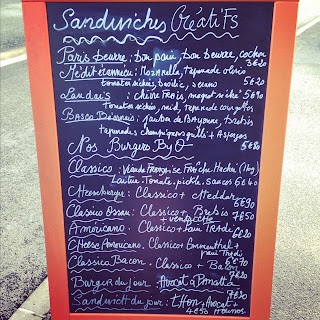 Sandwiches Créatifs
Paris beurre : bon pain, bon beurre, cochon
3€20
Méditerranéen : Mozzarella, tapenade olives
tomates séchées, basilic, serrano 5€20
Landais : chèvre frais, magret séché
tomates séchées, miel, tapenade courgettes 5€90
Basco Béarnais : jambon de Bayonne, brebis
tapenades champignons grillé + Asperges 5€90
Nos Burgers By O
Classico : viande Française Fraîche Hachée (1kg)
Laitue, Tomate, pickle, sauces 6€40
CHeeseburger : Classico + cHeddar
6€90
Classico Ossau : Classico + Brebis
+ ventrèche 7€50
Americano : Classico + Pain TRADi
6€20
CHeese Americano : Classico Emmenthal +
pain Tradi
Classico Bacon : Classico + Bacon
7€20
Burger du jour : Avocat à
7€20
Sandwich du jour : tHon + Avocat +
4€50